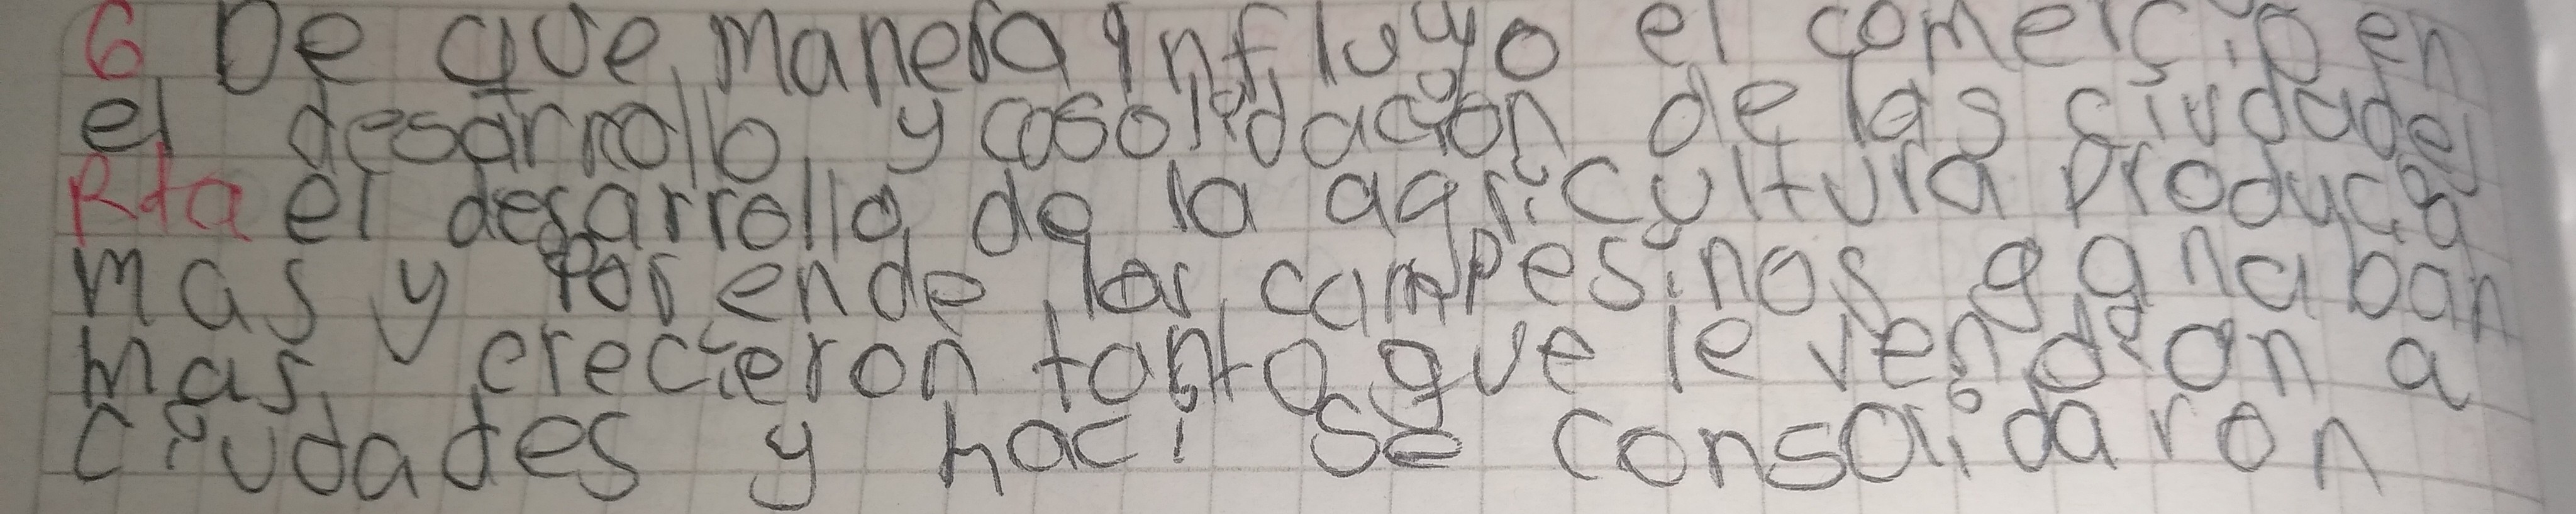 6 De que manera influyo el comercio en
el desarrollo y cosolidacion de las ciudades
Rta el desarrollo de la agricultura producia
mas y por ende los campesinos ganaban
mas y crecieron tanto que le vendian a
ciudades y haci se consolidaron